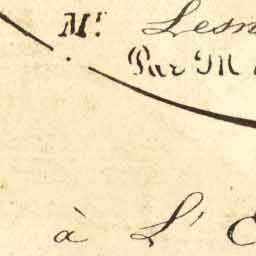 Mr. Lesn
Par M
à L'